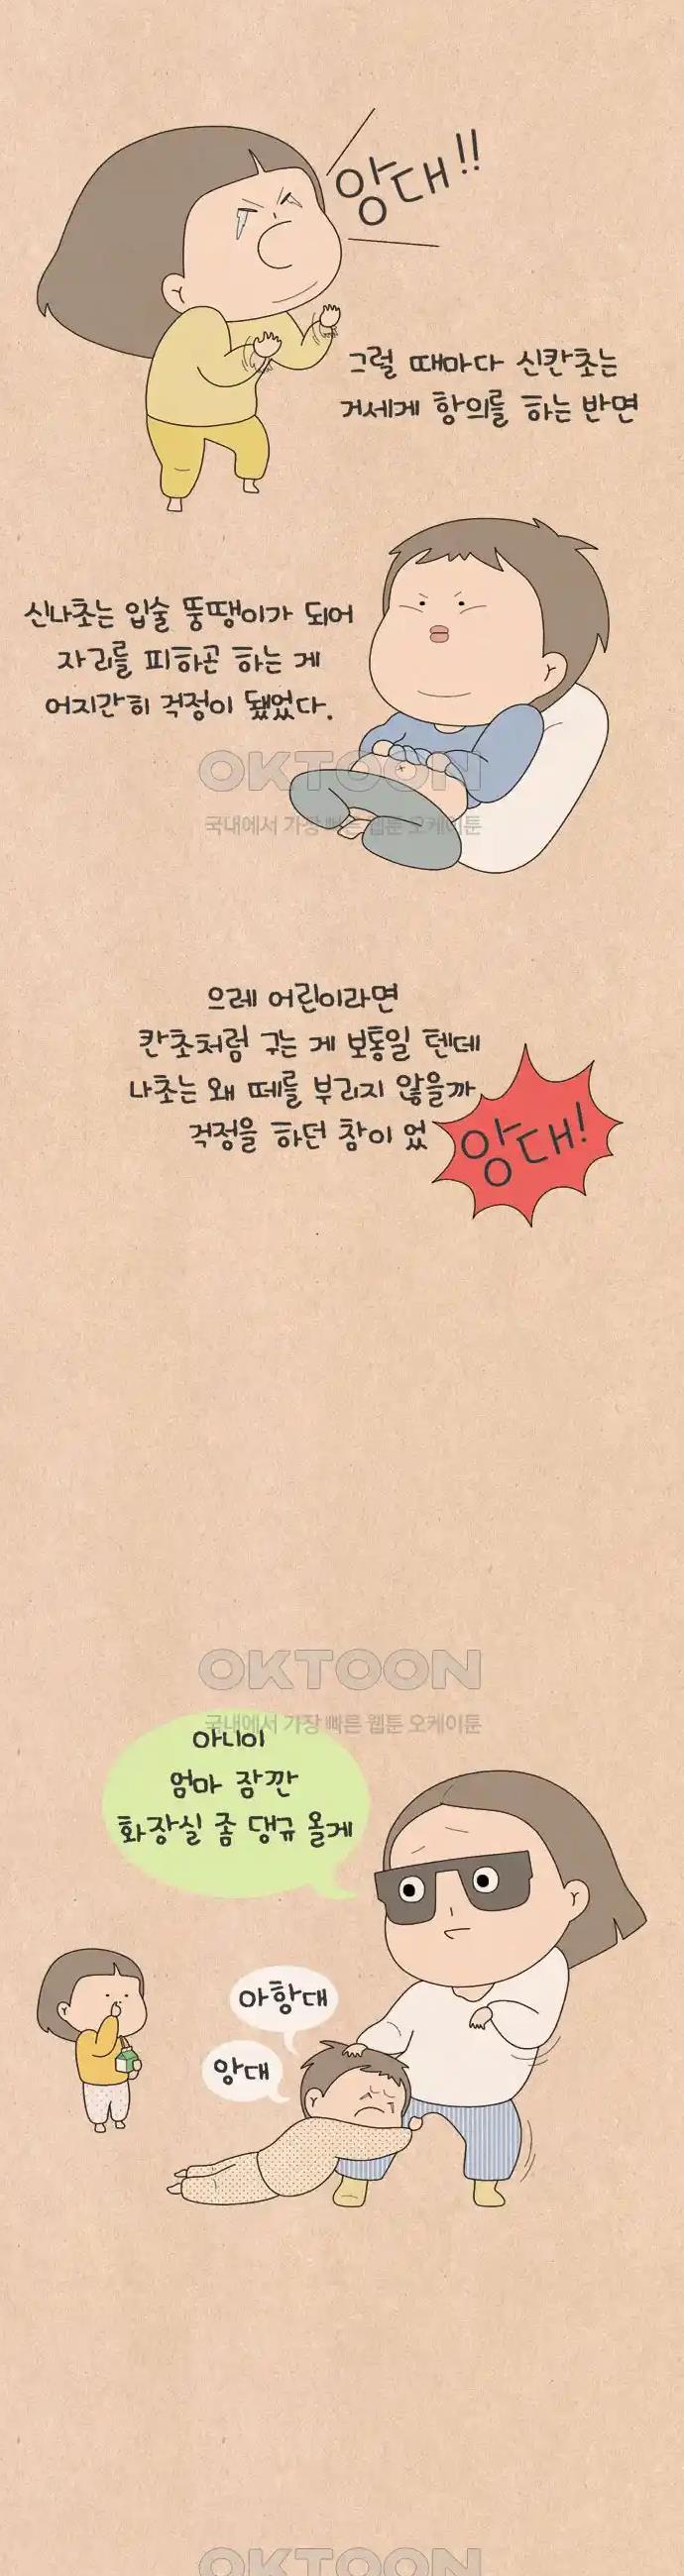 앙대!!
그럴 때마다 신칸초는
거세게 항의를 하는 반면
신나초는 입술 뚱땡이가 되어
자리를 피하곤 하는 게
어지간히 걱정이 됐었다.
OKTOON
국내에서 가장 빠른 웹툰 오케이툰
으레 어린이라면
칸초처럼 구는 게 보통일 텐데
나초는 왜 떼를 부리지 않을까
걱정을 하던 참이 었
앙대!
OKTOON
국내에서 가장 빠른 웹툰 오케이툰
아니이
엄마 잠깐
화장실 좀 댕규 올게
아항대
앙대
OKTOON